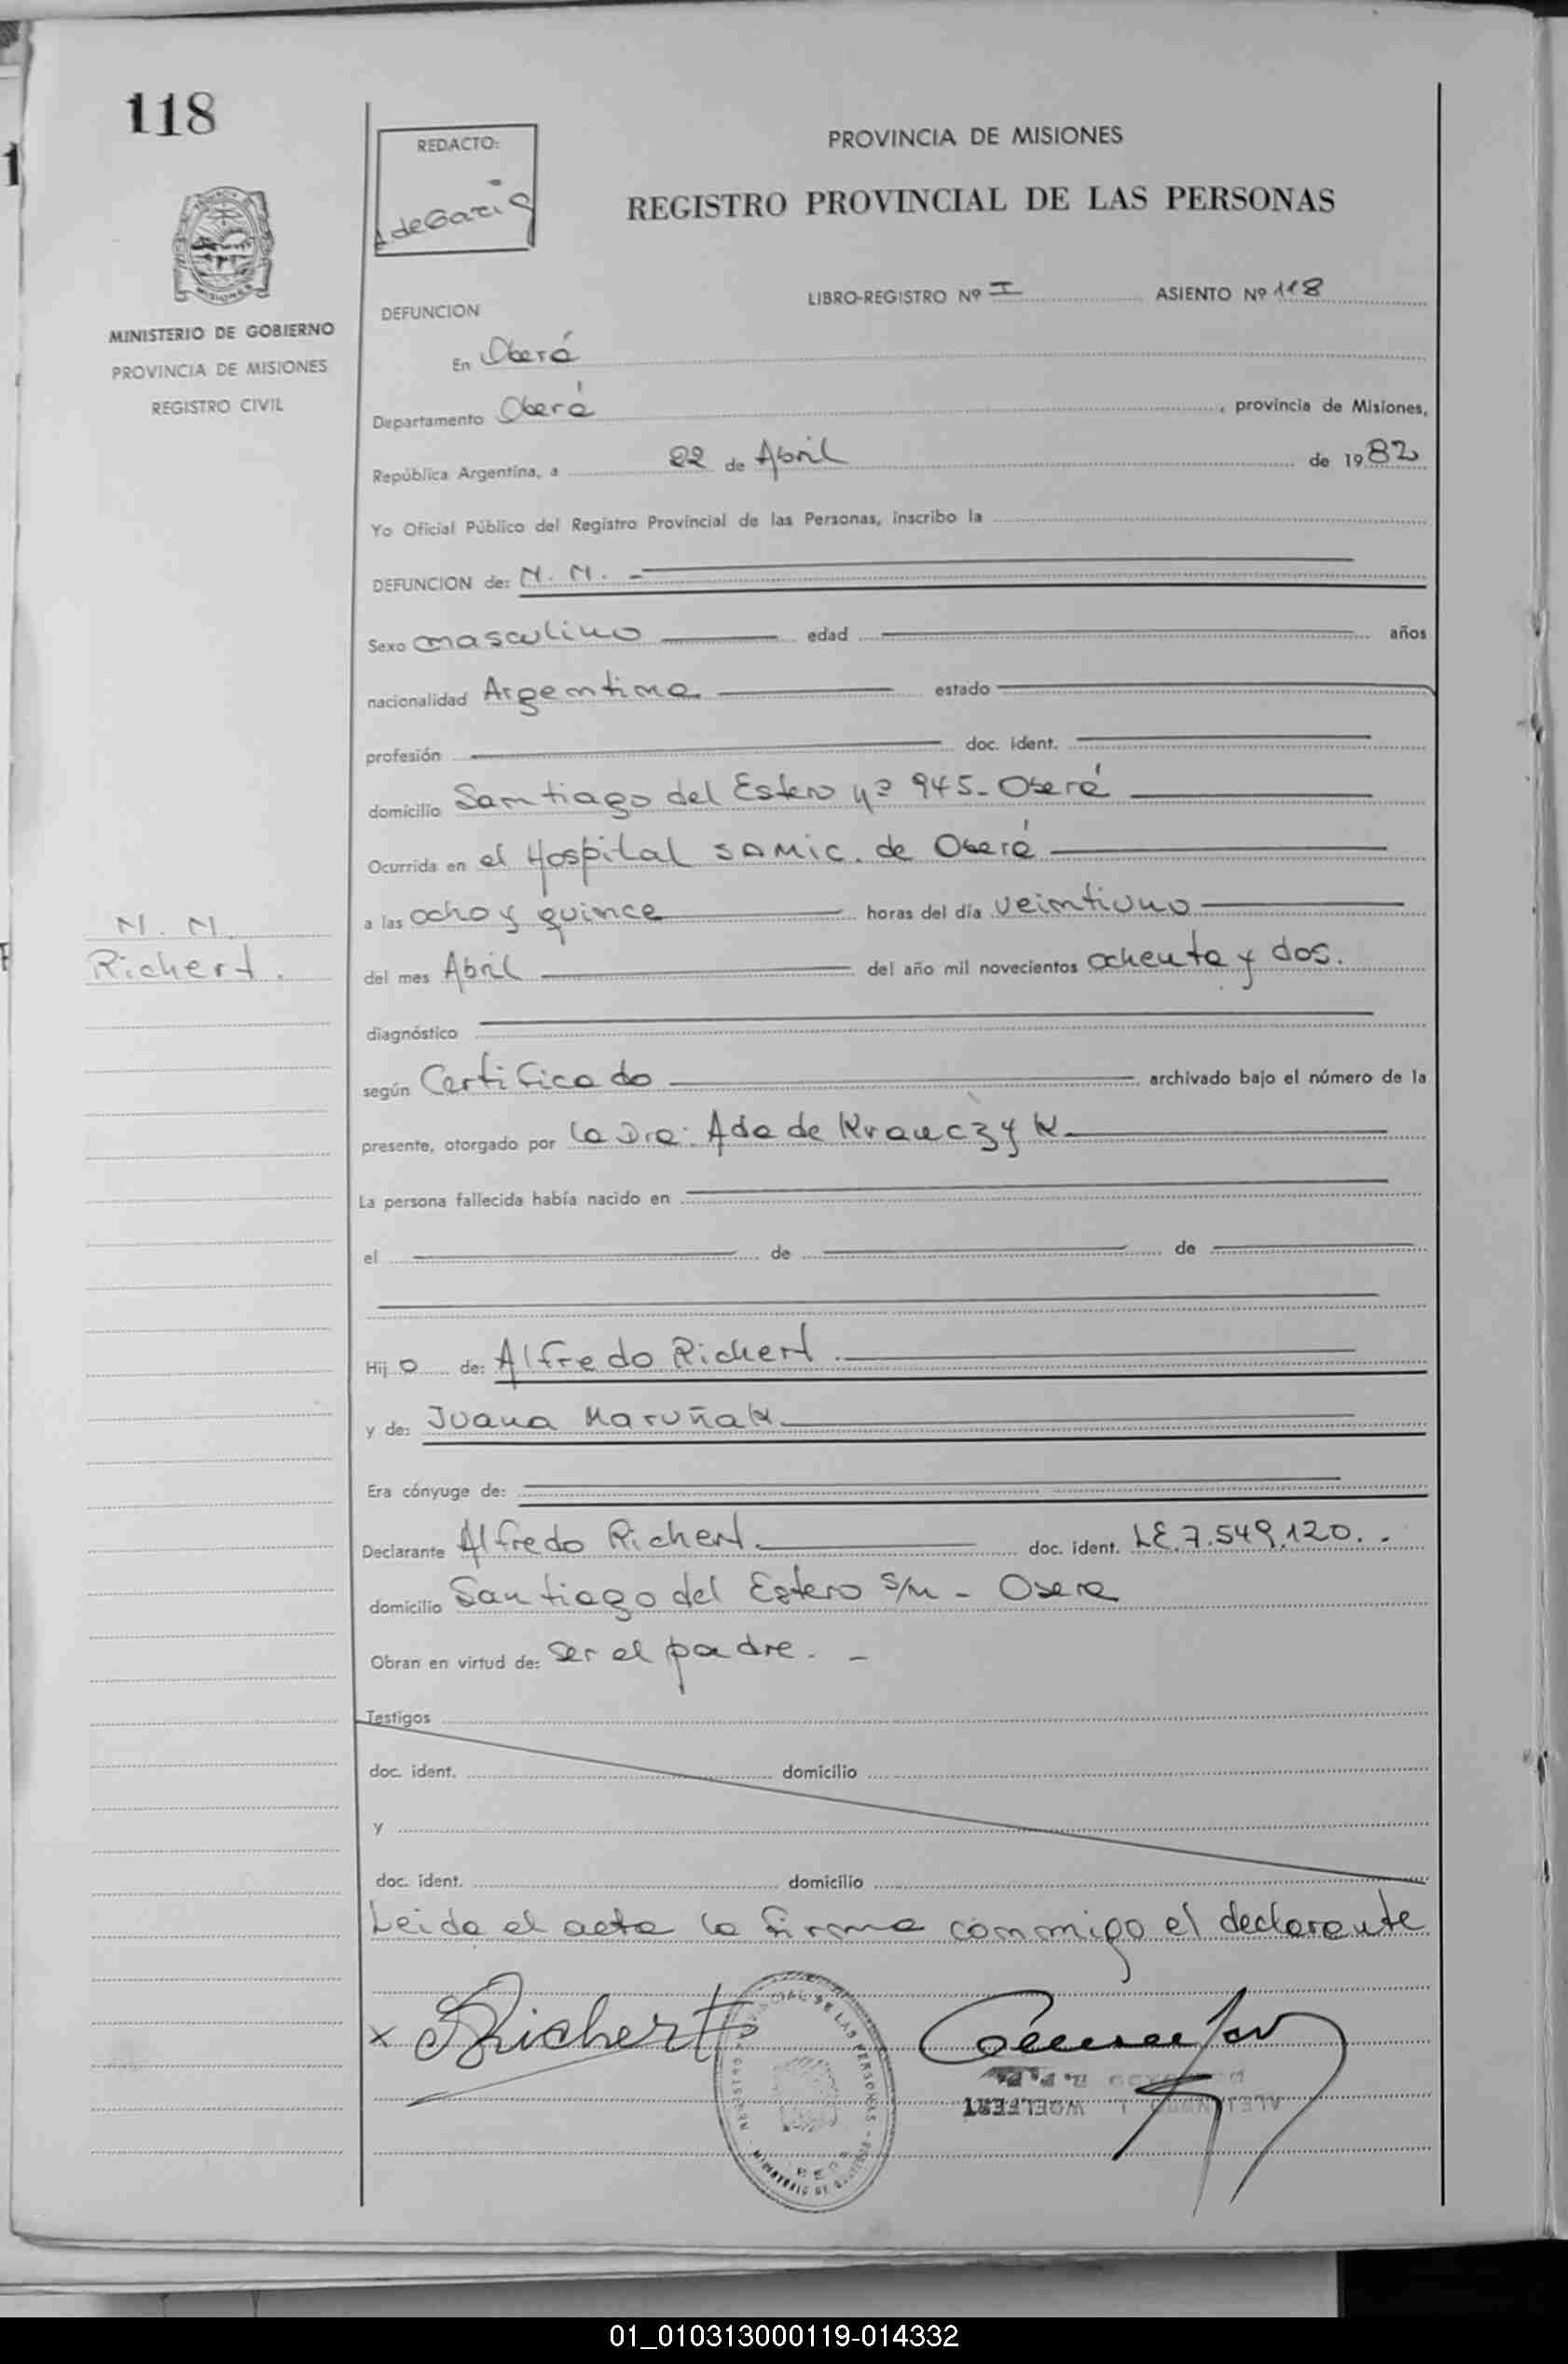 118
REDACTO:
PROVINCIA DE MISIONES
REGISTRO PROVINCIAL DE LAS PERSONAS
MISIONES
MINISTERIO DE GOBIERNO
PROVINCIA DE MISIONES
REGISTRO CIVIL
LIBRO-REGISTRO Nº I ASIENTO Nº 118
DEFUNCION
En Oberá
Departamento Oberá, provincia de Misiones,
República Argentina, a 22 de Abril de 1982
Yo Oficial Público del Registro Provincial de las Personas, inscribo la
DEFUNCION de: N. N. -
Sexo masculino edad años
nacionalidad Argentina estado
profesión doc. ident.
domicilio Santiago del Estero nº 945 - Oberá
Ocurrida en el Hospital SAMIC. de Oberá
a las ocho y quince horas del día veintiuno
N. N.
Richert.
del mes Abril del año mil novecientos ochenta y dos.
diagnóstico
según Certificado archivado bajo el número de la
presente, otorgado por la Dra: Ada de Krawczyk
La persona fallecida había nacido en
el de de
Hijo de: Alfredo Richert
y de: Juana Maruñak
Era cónyuge de:
Declarante Alfredo Richert. doc. ident. LE. 7.549.120. -
domicilio Santiago del Estero s/n - Obera
Obran en virtud de: ser el padre. -
Testigos
doc. ident. domicilio
y
doc. ident. domicilio
Leida el acta la firma conmigo el declarante
x Richert
WOELFERT
01_010313000119-014332